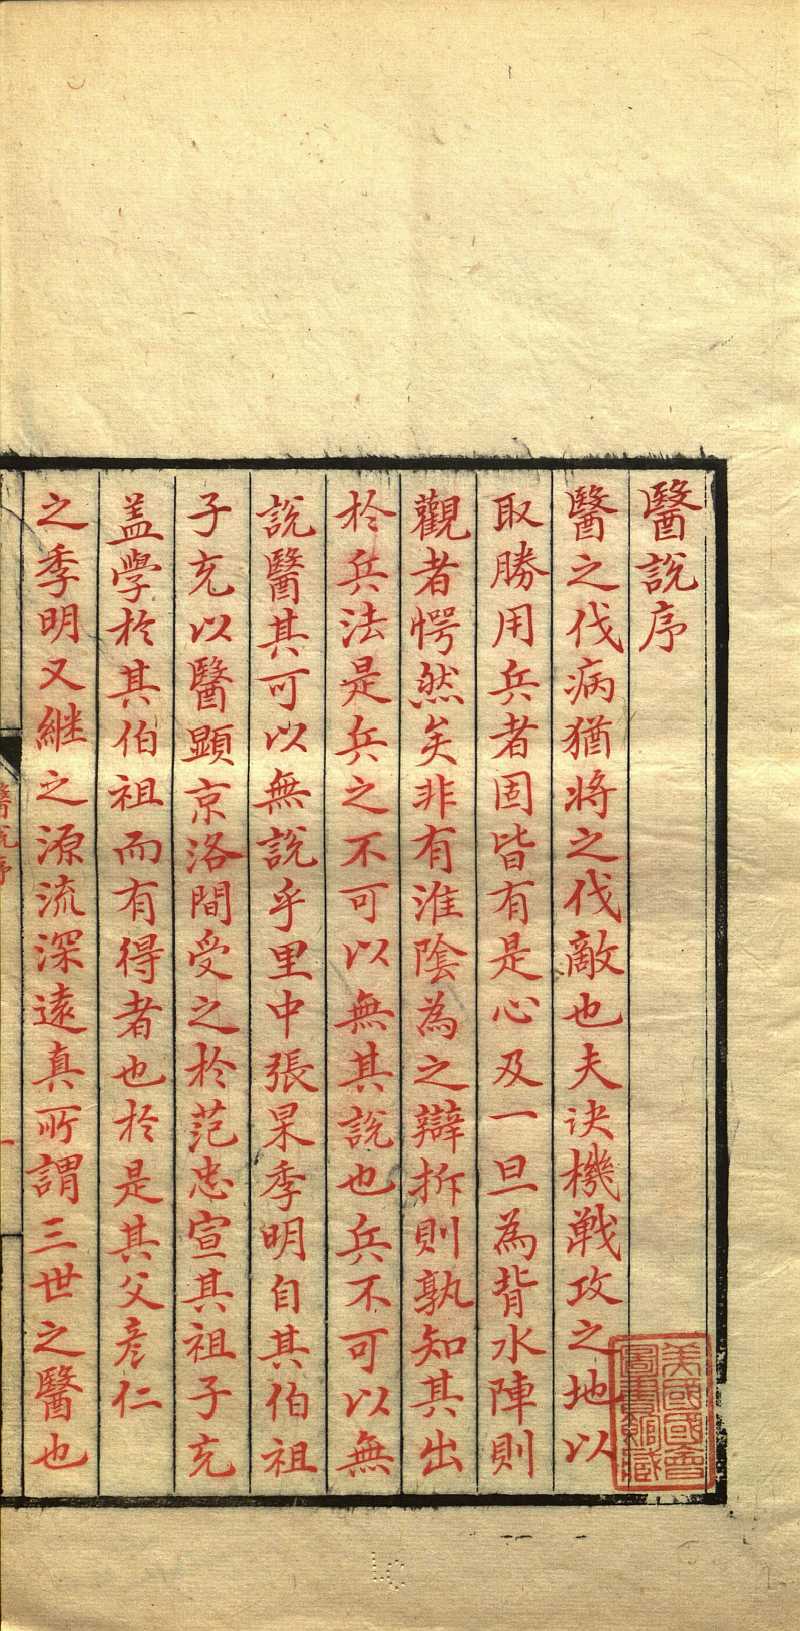 醫説序
醫之伐病猶將之伐敵也夫決機戰攻之地以
取勝用兵者固皆有是心及一旦為背水陣則
觀者愕然矣非有淮陰為之辯拆則孰知其出
於兵法是兵之不可以無其說也兵不可以無
說醫其可以無說乎里中張杲季明自其伯祖
子充以醫顯京洛間受之於范忠宣其祖子充
盖學於其伯祖而有得者也於是其父彦仁
之季明又継之源流深遠真所謂三世之醫也
醫說序
一
美國國會
圖書館藏